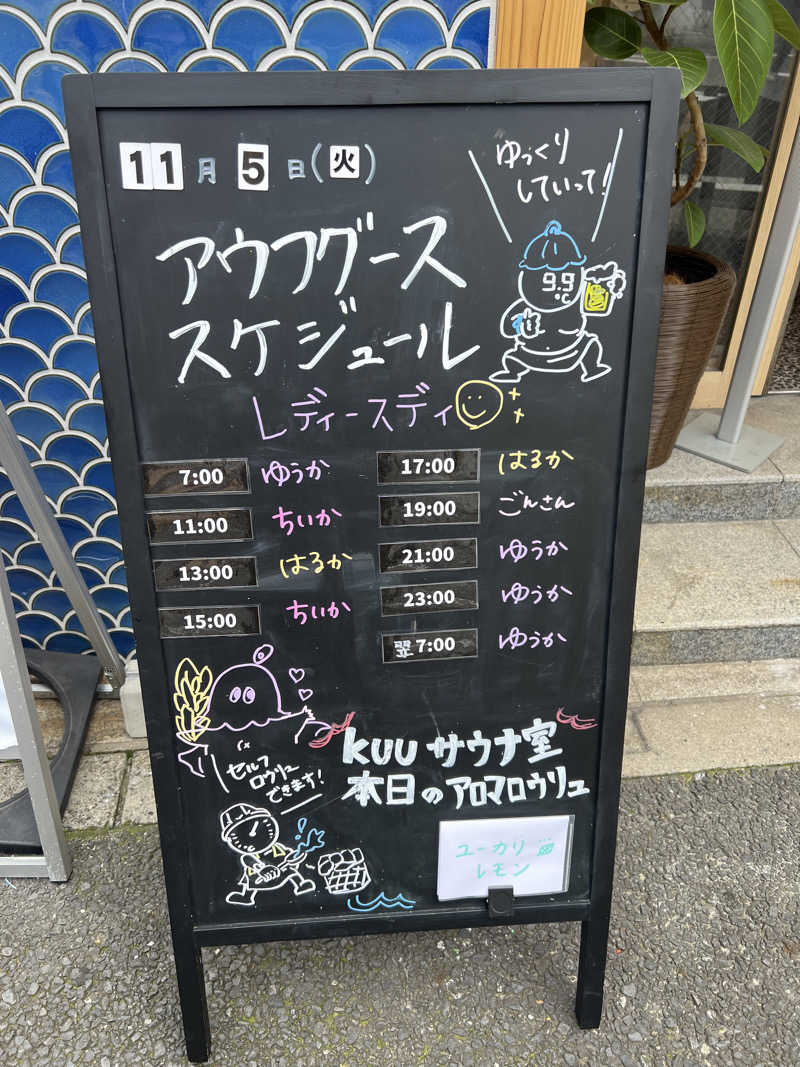 11月5日(火)
ゆっくり
していって!
アウフグース
スケジュール
9.9
℃
レディースディ
7:00 ゆうか
11:00 ちいか
13:00 はるか
15:00 ちいか
17:00 はるか
19:00 ごんさん
21:00 ゆうか
23:00 ゆうか
翌7:00 ゆうか
セルフ
ロウリュ
できます!
KUU サウナ室
本日のアロマロウリュ
ユーカリ
レモン